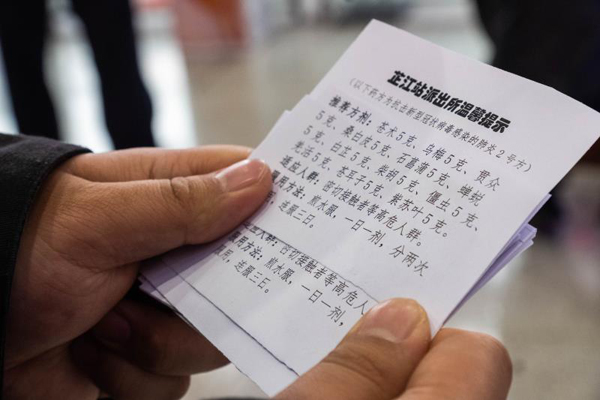 芷江站派出所温馨提示
（以下药方为抗击新型冠状病毒感染的肺炎2号方）
推荐方剂：苍术5克、乌梅5克、贯众
5克、桑白皮5克、石菖蒲5克、蝉蜕
5克、白芷5克、柴胡5克、僵虫5克、
羌活5克、苍耳子5克、紫苏叶5克。
适应人群：密切接触者等高危人群。
服用方法：煎水服，一日一剂，分两次
服，连服三日。
应人群：密切接触者等高危人
用方法：煎水服，一日一剂，
，连服三日。